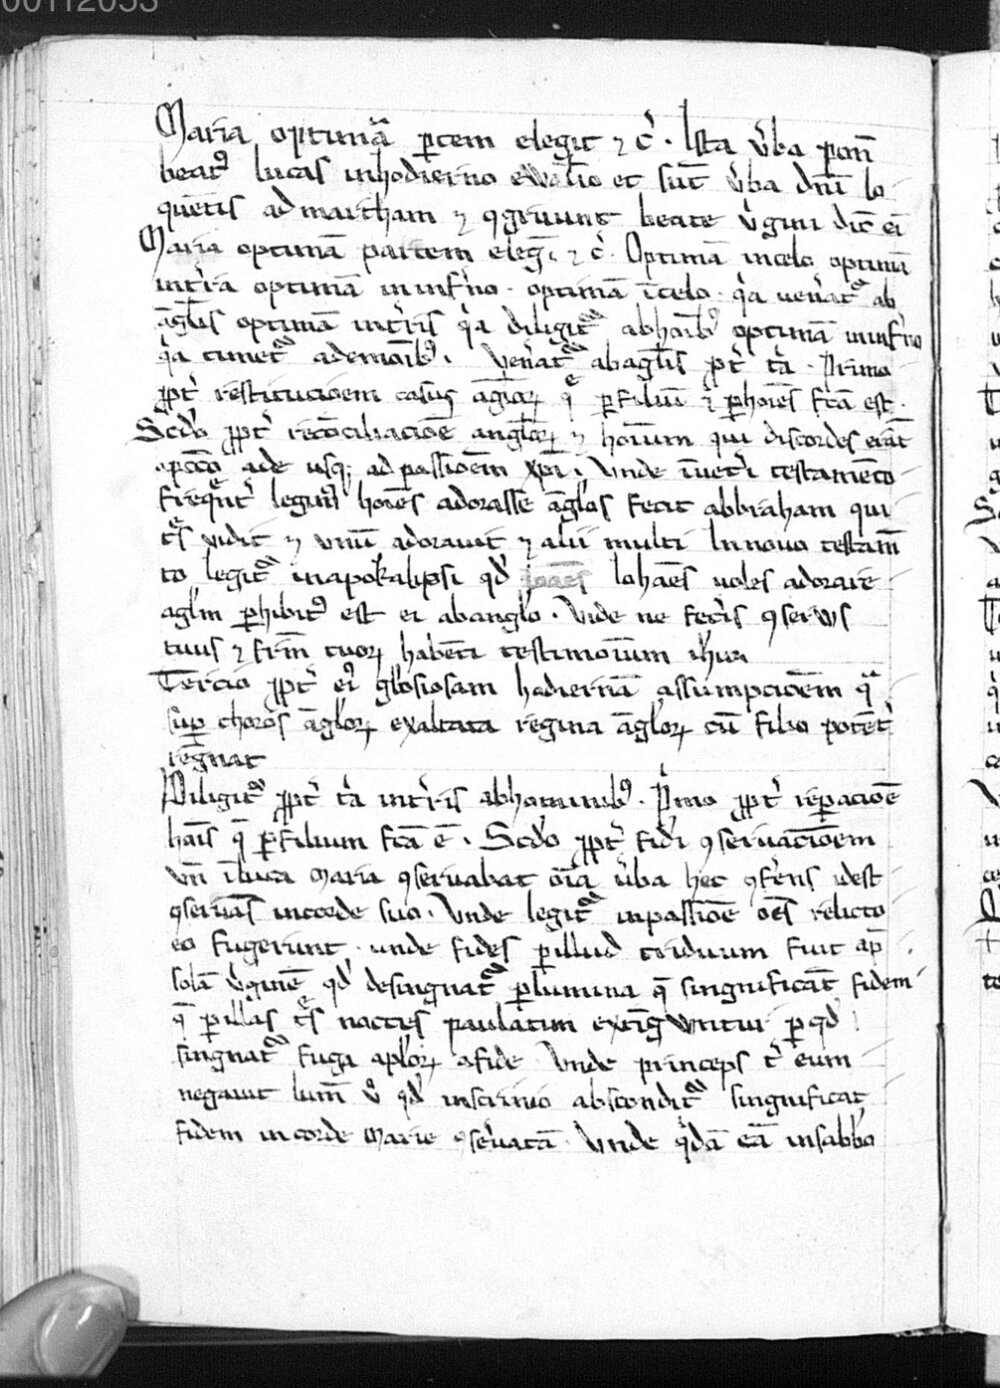 00112053
Maria optimã ptem elegit ⁊ c̾. Ista v̾ba ponit
beatꝰ lucas inhodierno ewãlio et sũt v̾ba dñi lo
quẽtis ad martham ⁊ ꝯgruunt beate v̾gini
Maria optimã partem eleg̃. ⁊ c̾. Optimã incelo optimã
int̾ra optimã ininf̾no. optimã ĩcelo. q̾a uen̾at᷑ ab
ãgłis optimã int̾ris q̾a diligit᷑ abhoĩbꝰ optimã ininf̾no
q̾a timet᷑ ademonĩbꝰ. Ven̾at᷑ abagłis ꝓpt̾ t̾a. Primo
ꝓpt̾ restitucionem casus ãgłoꝝ ꝑfilium fca est.
Scd̾o ꝓpt̾ recõciliacionẽ angłoꝝ ⁊ hoĩum qui discordes erãt
apccõ ade usqꝫ ad passionẽm xp̃i. Vnde ĩuet̾i testamẽto
freqũt̾ legimꝰ hoĩes adorasse ãgłos fecit abbraham qui
vidit ⁊ vnũ adorauit ⁊ alii multi In nouo testamñ
to legit᷑ inapokalipsi qd̾ Iohañes uoles adorare
agłm ꝓhibitꝰ est ei abangło. Vide ne fec̾is ꝯseruus
tuus ⁊ fr̃m tuoꝝ habẽti testimoĩum ihũ
Tercio ꝓpt̾ ei̾ gloriosam hodiernã assumpcionẽm
sup choros ãgłoꝝ exaltata regina ãgłoꝝ cũ filio potẽt̾
regnat
Diligit᷑ ꝓpt̾ t̾a int̾ris abhominibꝰ. P̾mo ꝓpt̾ repacionẽ
q̃ ꝑfilium fca ẽ. Scd̾o ꝓpt̾ fidi ꝯseruacionem
vñ ĩluca maria ꝯseruabat oĩa v̾ba hec ꝯf̾ens idest
ꝯseruãs incorde suo. Vnde legit᷑ inpassionẽ oẽs relicto
eo fugerunt. unde fides ꝑillud triduum fuit ap̃
solã v̾ginẽ qd̾ desingnat᷑ ꝑlumina q̃ singnificãt fidem
q̃ ꝑillas noctes paulatim extĩgwntur ꝑqd̾
singnat᷑ fuga apłoꝝ afide Vnde princeps eum
negauit lum̃ v̾ qd̾ inscrinio abscondit᷑ singnificat
fidem in corde marie ꝯseruatã. Vnde q̾dã eã insabbo